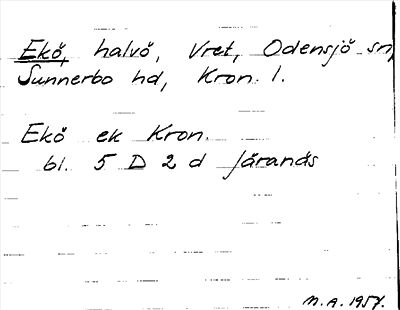 Ekö, halvö, Vret, Odensjö sn,
Sunnerbo hd, Kron. l.
Ekö ek Kron.
bl. 5 D 2 d Järanäs
M.A. 1957.